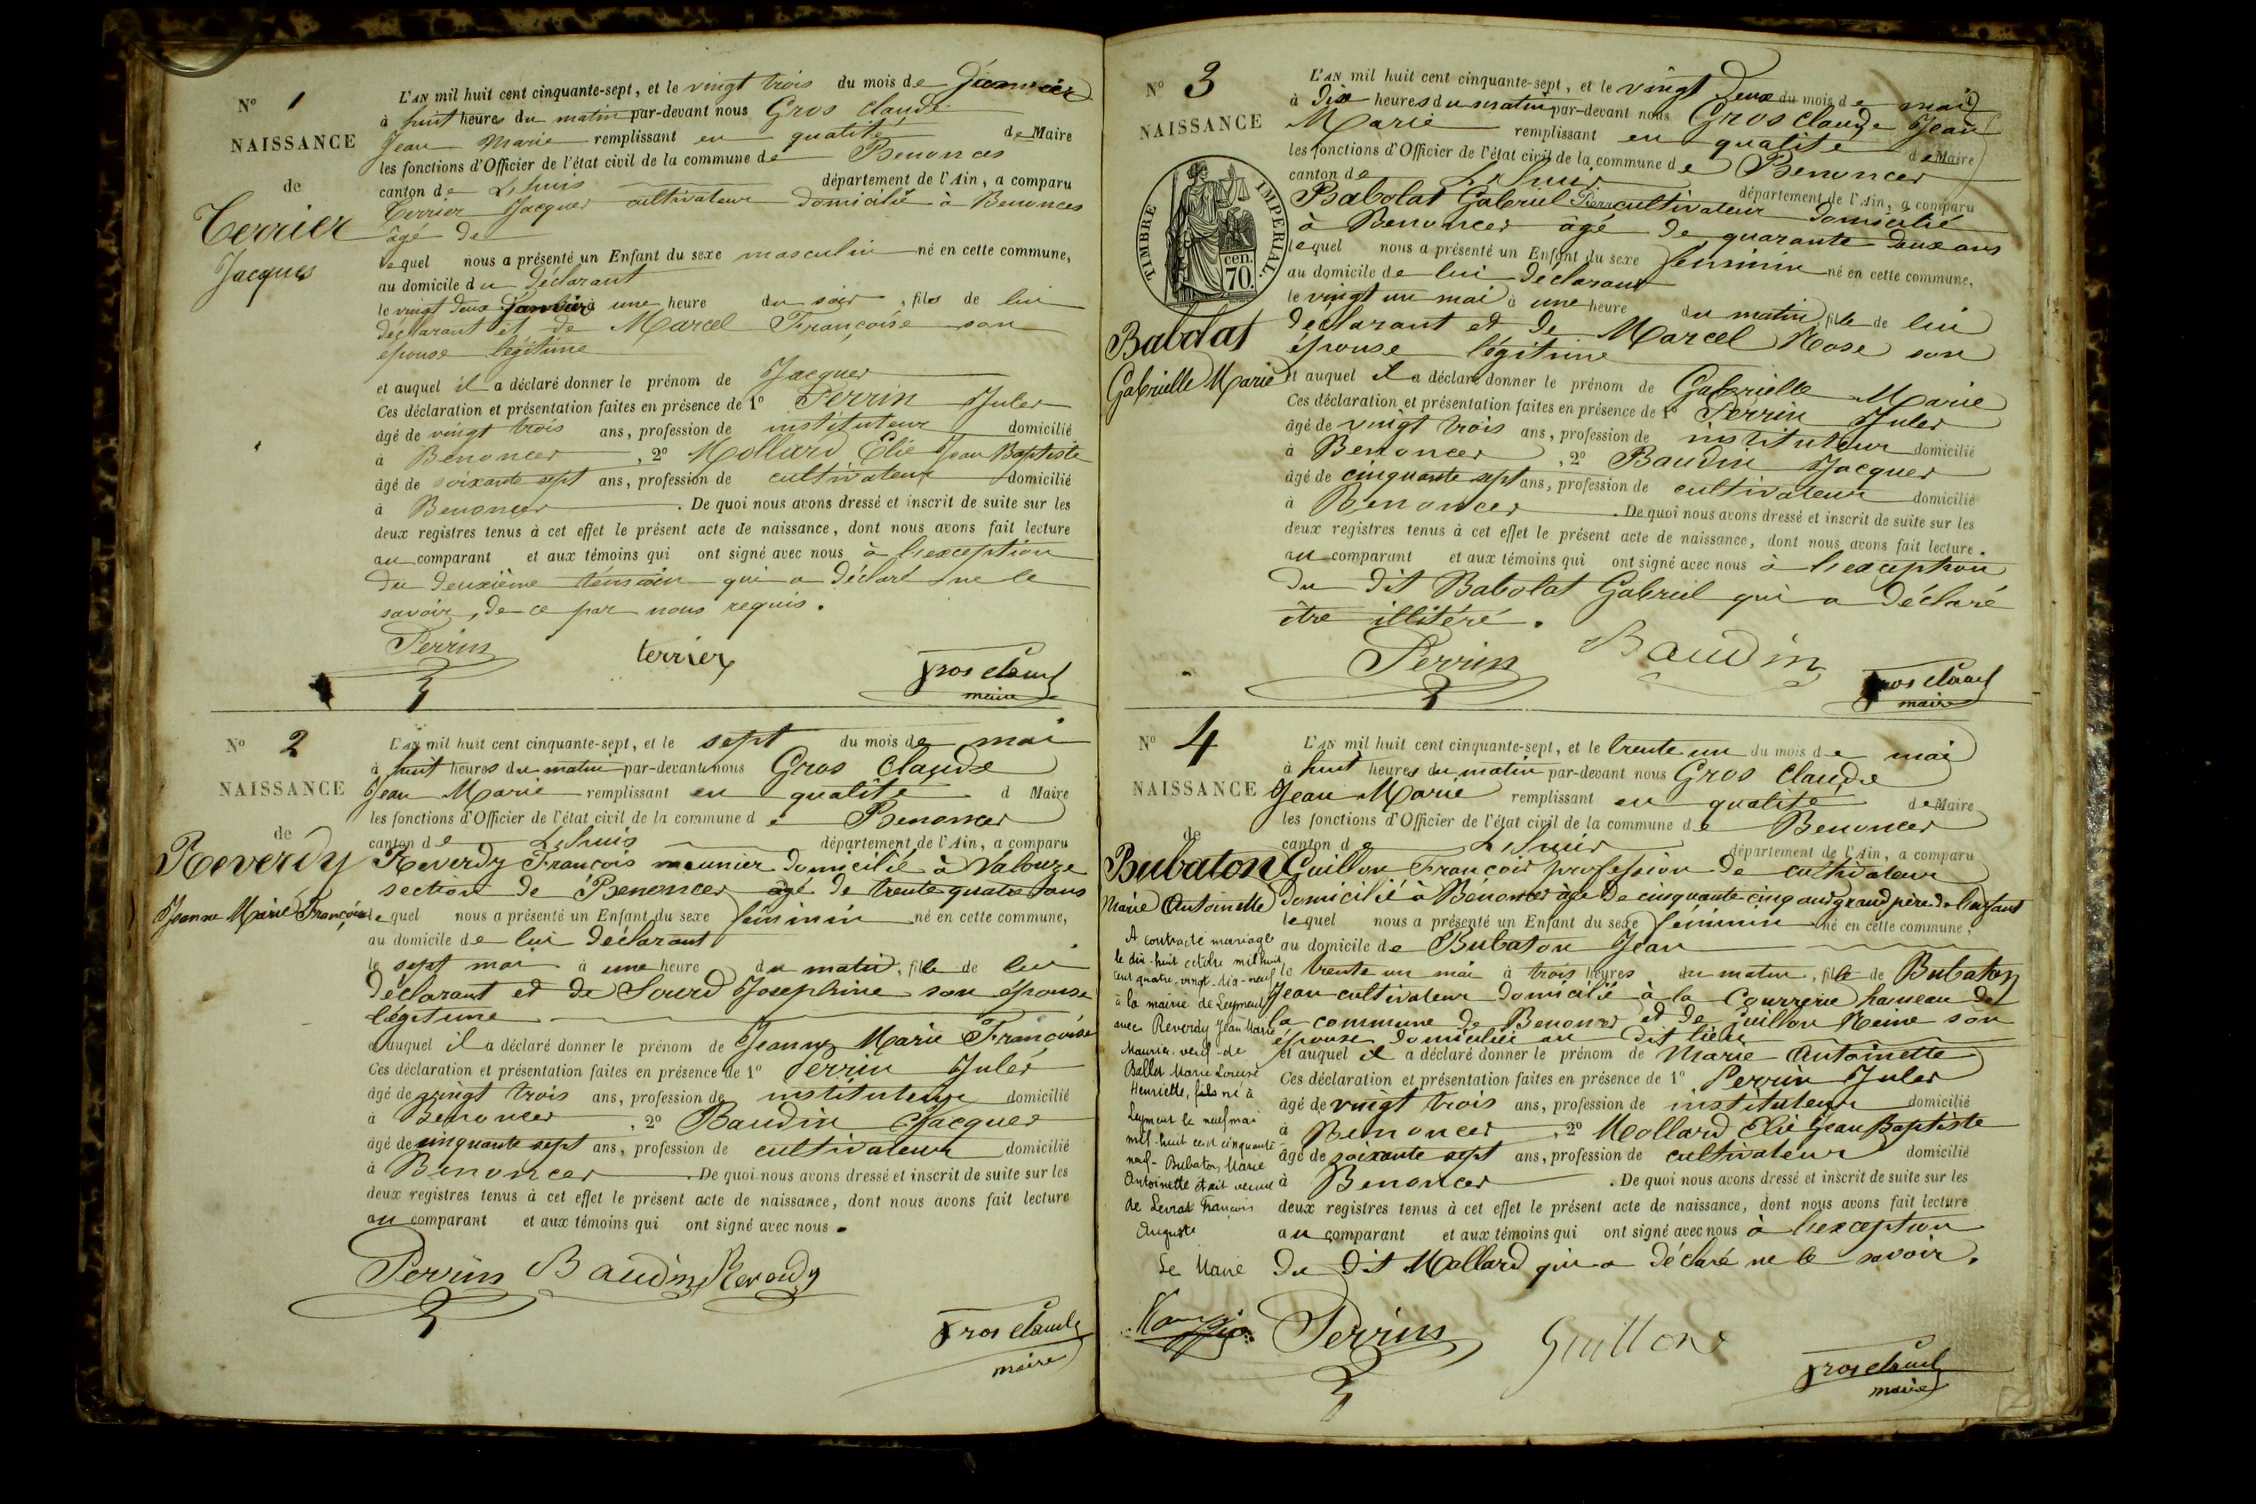 N° 1
NAISSANCE
de
Terrier
Jacques
L'AN mil huit cent cinquante-sept, et le vingt trois du mois de Janvier
à huit heures du matin par-devant nous Gros Claude
Jean Marie remplissant en qualité de Maire
les fonctions d'Officier de l'état civil de la commune de Benonces
canton de Lhuis département de l'Ain, a comparu
Terrier Jacques cultivateur domicilié à Benonces
âgé de
lequel nous a présenté un Enfant du sexe masculin né en cette commune,
au domicile du déclarant
le vingt deux Janvier à une heure du soir, fils de lui
déclarant et de Marcel Françoise son
épouse légitime
et auquel il a déclaré donner le prénom de Jacques
Ces déclaration et présentation faites en présence de 1° Perrin Jules
âgé de vingt trois ans, profession de instituteur domicilié
à Benonces, 2° Mollard Elie Jean Baptiste
âgé de soixante sept ans, profession de cultivateur domicilié
à Benonces. De quoi nous avons dressé et inscrit de suite sur les
deux registres tenus à cet effet le présent acte de naissance, dont nous avons fait lecture
au comparant et aux témoins qui ont signé avec nous à l'exception
du deuxième témoin qui a déclaré ne le
savoir, de ce par nous requis.
Perrin terrier Gros Claude
maire
N° 2
NAISSANCE
de
Reverdy
Jeanne Marie Françoise
L'AN mil huit cent cinquante-sept, et le sept du mois de mai
à huit heures du matin par-devant nous Gros Claude
Jean Marie remplissant en qualité d Maire
les fonctions d'Officier de l'état civil de la commune de Benonces
canton de Lhuis département de l'Ain, a comparu
Reverdy François meunier domicilié à Valouze
section de Benonces âgé de trente quatre ans
lequel nous a présenté un Enfant du sexe féminin né en cette commune,
au domicile de lui déclarant
le sept mai à une heure du matin, fille de lui
déclarant et de Sourd Josephine son épouse
légitime
et auquel il a déclaré donner le prénom de Jeanne Marie Françoise
Ces déclaration et présentation faites en présence de 1° Perrin Jules
âgé de vingt trois ans, profession de instituteur domicilié
à Benonces, 2° Baudin Jacques
âgé de cinquante sept ans, profession de cultivateur domicilié
à Benonces. De quoi nous avons dressé et inscrit de suite sur les
deux registres tenus à cet effet le présent acte de naissance, dont nous avons fait lecture
au comparant et aux témoins qui ont signé avec nous.
Perrin Baudin Reverdy
Gros Claude
maire
N° 3
NAISSANCE
TIMBRE IMPERIAL.
cen.
70.
Babolat
Gabrielle Marie
L'AN mil huit cent cinquante-sept, et le vingt deux du mois de mai
à dix heures du matin par-devant nous Gros Claude Jean
Marie remplissant en qualité de Maire
les fonctions d'Officier de l'état civil de la commune de Benonces
canton de Lhuis département de l'Ain, a comparu
Babolat Gabriel cultivateur domicilié
à Benonces âgé de quarante deux ans
lequel nous a présenté un Enfant du sexe féminin né en cette commune,
au domicile de lui déclarant
le vingt un mai à une heure du matin, fille de lui
déclarant et de Marcel Rose son
épouse légitime
et auquel il a déclaré donner le prénom de Gabrielle Marie
Ces déclaration et présentation faites en présence de 1° Perrin Jules
âgé de vingt trois ans, profession de instituteur domicilié
à Benonces, 2° Baudin Jacques
âgé de cinquante sept ans, profession de cultivateur domicilié
à Benonces. De quoi nous avons dressé et inscrit de suite sur les
deux registres tenus à cet effet le présent acte de naissance, dont nous avons fait lecture
au comparant et aux témoins qui ont signé avec nous à l'exception
du dit Babolat Gabriel qui a déclaré
être illitéré.
Perrin Baudin Gros Claude
maire
N° 4
NAISSANCE
de
Bubaton
Marie Antoinette
A contracté mariage
le dix-huit octobre mil huit
cent quatre-vingt-dix-neuf
à la mairie de Leyment
avec Reverdy Jean Marie
Maurice veuf de
Ballet Marie Louise
Henriette, fils né à
Leyment le neuf mai
mil huit cent cinquante
neuf - Bubaton Marie
Antoinette était veuve
de Levrat François
Auguste
Le Maire
L'AN mil huit cent cinquante-sept, et le trente un du mois de mai
à huit heures du matin par-devant nous Gros Claude
Jean Marie remplissant en qualité de Maire
les fonctions d'Officier de l'état civil de la commune de Benonces
canton de Lhuis département de l'Ain, a comparu
Guillon François profession de cultivateur
domicilié à Bénonces âgé de cinquante cinq ans grand père de l'enfant
lequel nous a présenté un Enfant du sexe féminin né en cette commune,
au domicile de Bubaton Jean
le trente un mai à trois heures du matin, fille de Bubaton
Jean cultivateur domicilié à la Courrerie hameau de
la commune de Benonces et de Guillon Reine son
épouse domiciliée au dit lieu
et auquel il a déclaré donner le prénom de Marie Antoinette
Ces déclaration et présentation faites en présence de 1° Perrin Jules
âgé de vingt trois ans, profession de instituteur domicilié
à Benonces, 2° Mollard Elie Jean Baptiste
âgé de soixante sept ans, profession de cultivateur domicilié
à Benonces. De quoi nous avons dressé et inscrit de suite sur les
deux registres tenus à cet effet le présent acte de naissance, dont nous avons fait lecture
au comparant et aux témoins qui ont signé avec nous à l'exception
du dit Mollard qui a déclaré ne le savoir.
Perrin Guillon Gros Claude
maire